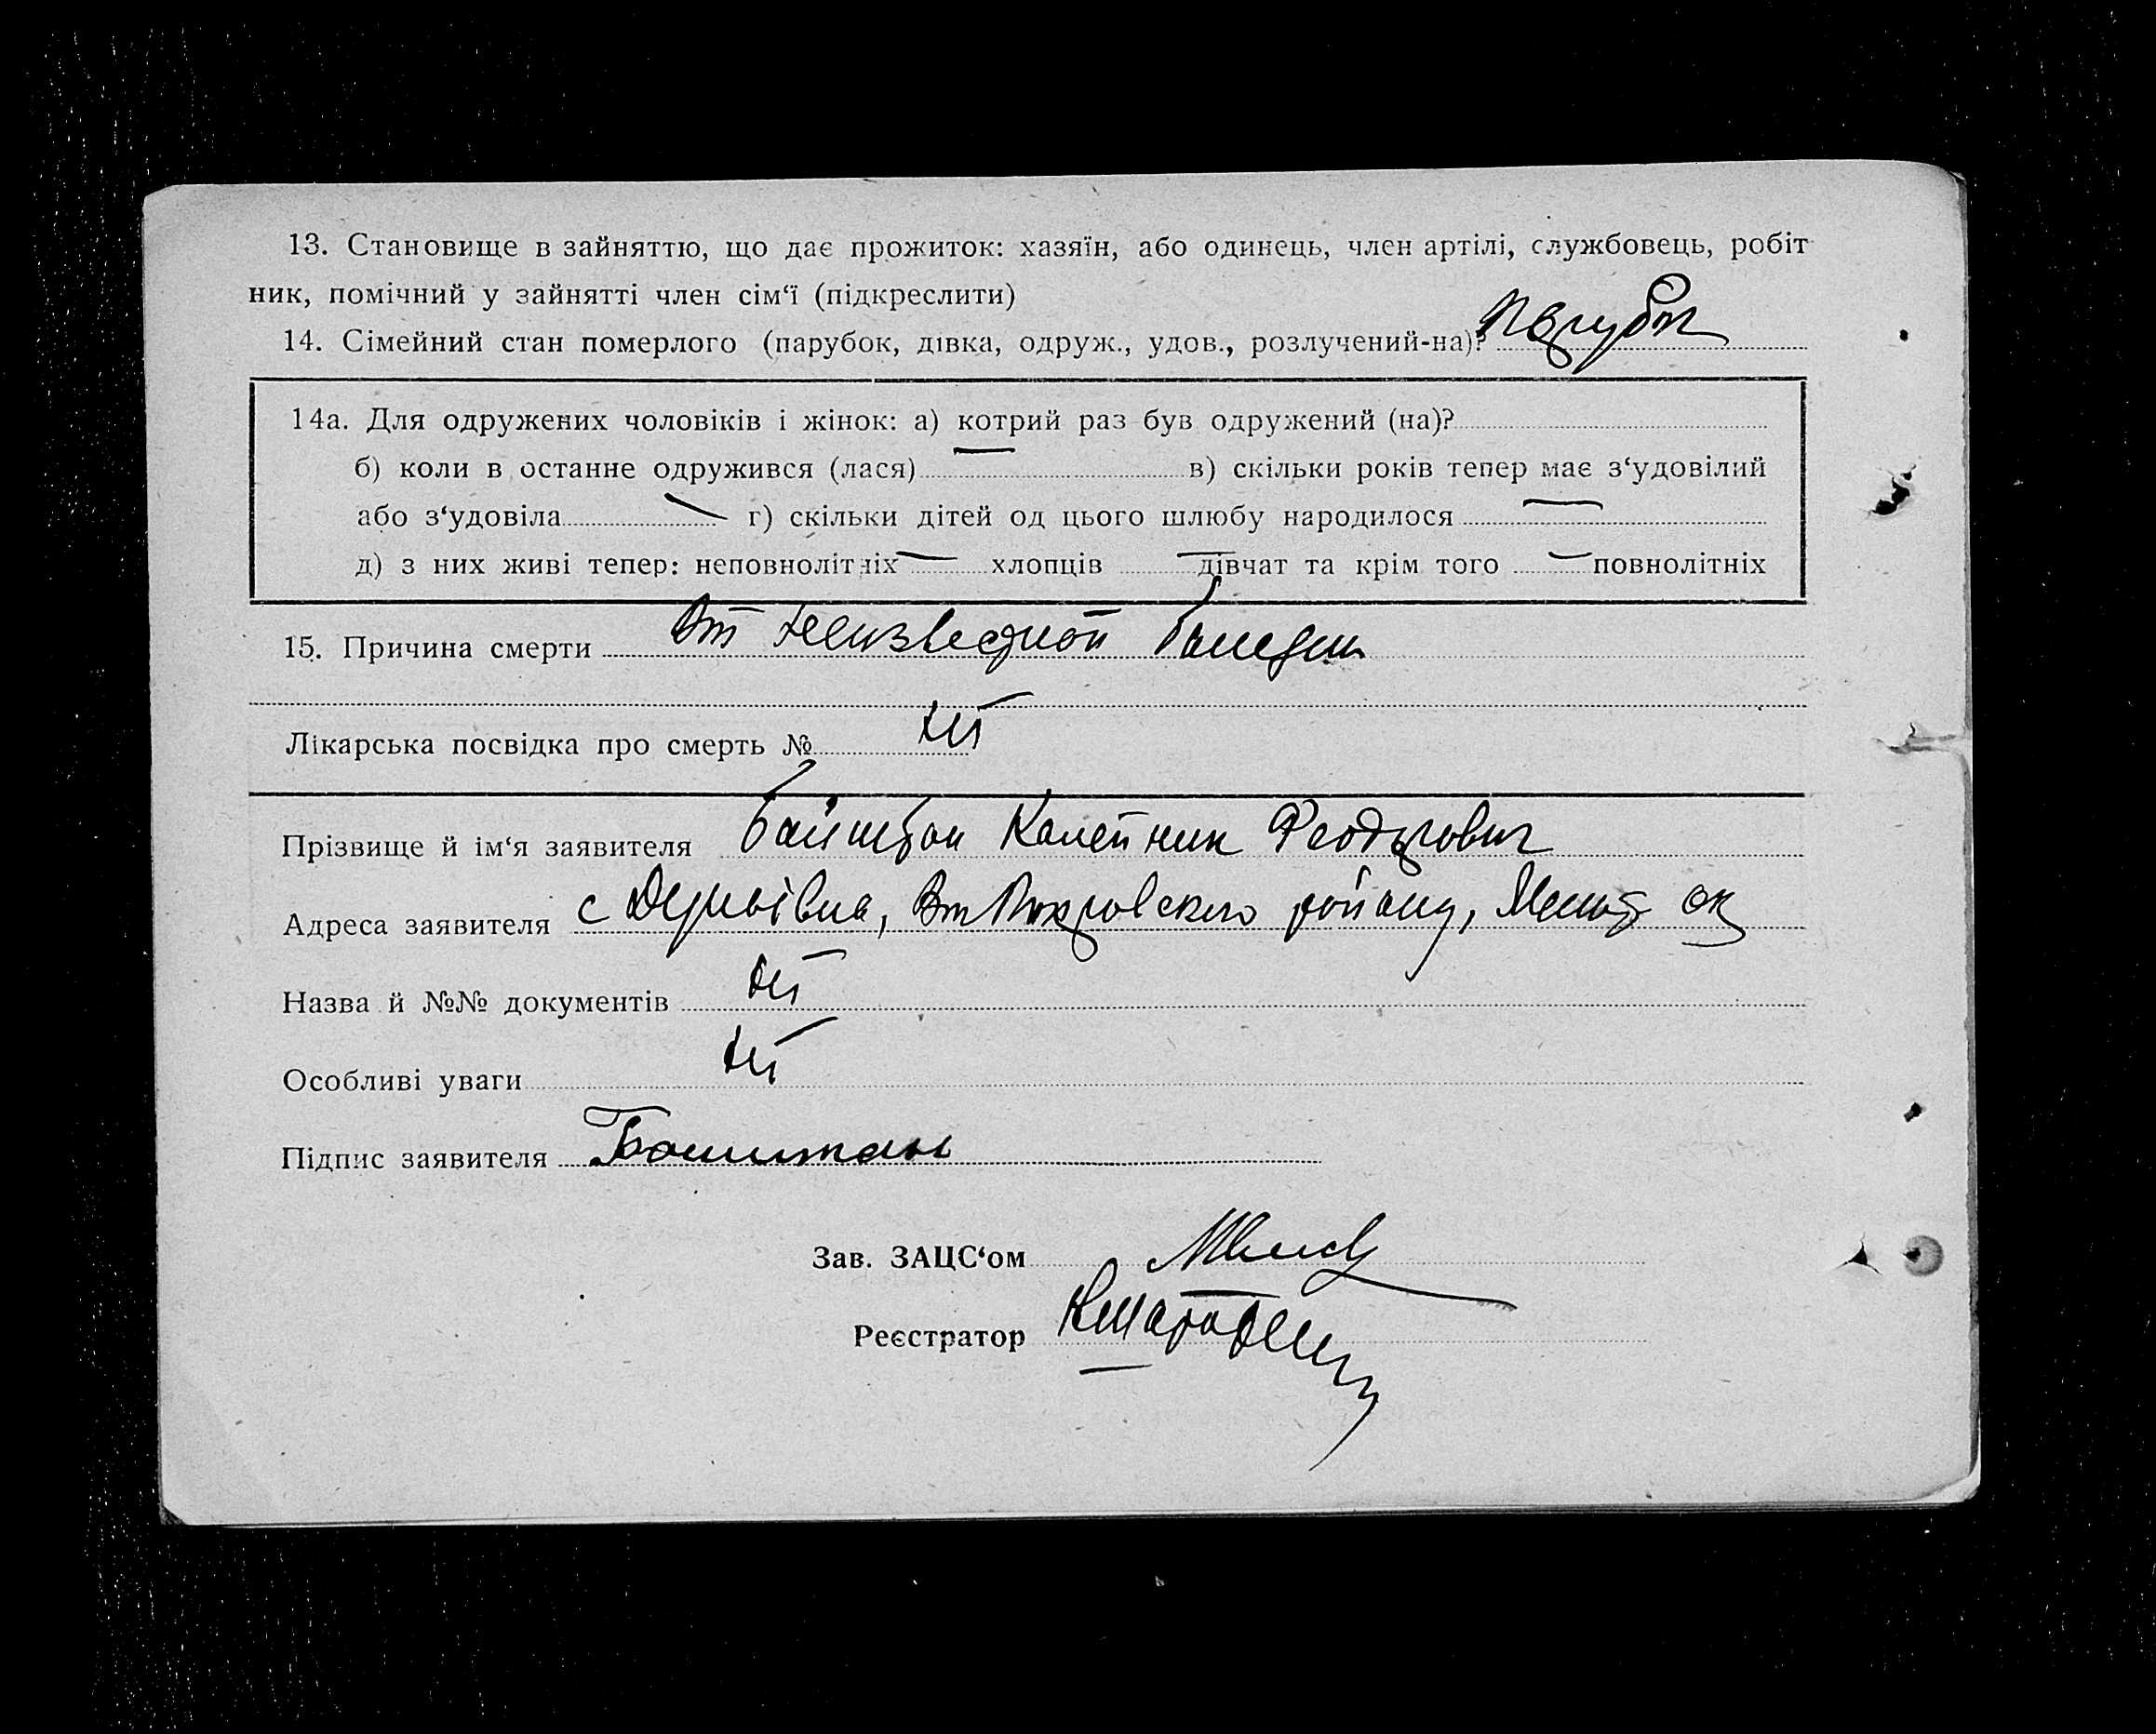 13. Становище в зайняттю, що дає прожиток: хазяїн, або одинець, член артілі, службовець, робіт
ник, помічний у зайнятті член сім‘ї (підкреслити)
14. Сімейний стан померлого (парубок, дівка, одруж., удов., розлучений-на)? Парубок
14а. Для одружених чоловіків і жінок: а) котрий раз був одружений (на)?
б) коли в останне одружився (лася) — в) скільки років тепер має з‘удовілий
або з‘удовіла — г) скільки дітей од цього шлюбу народилося —
д) з них живі тепер: неповнолітніх — хлопців — дівчат та крім того — повнолітніх
15. Причина смерти От неизвестной болезни
Лікарська посвідка про смерть № нет
Прізвище й ім‘я заявителя Федорович
Адреса заявителя с Деріївка, району,
Назва й №№ документів нет
Особливі уваги нет
Підпис заявителя Башитан
Зав. ЗАЦС‘ом
Реєстратор